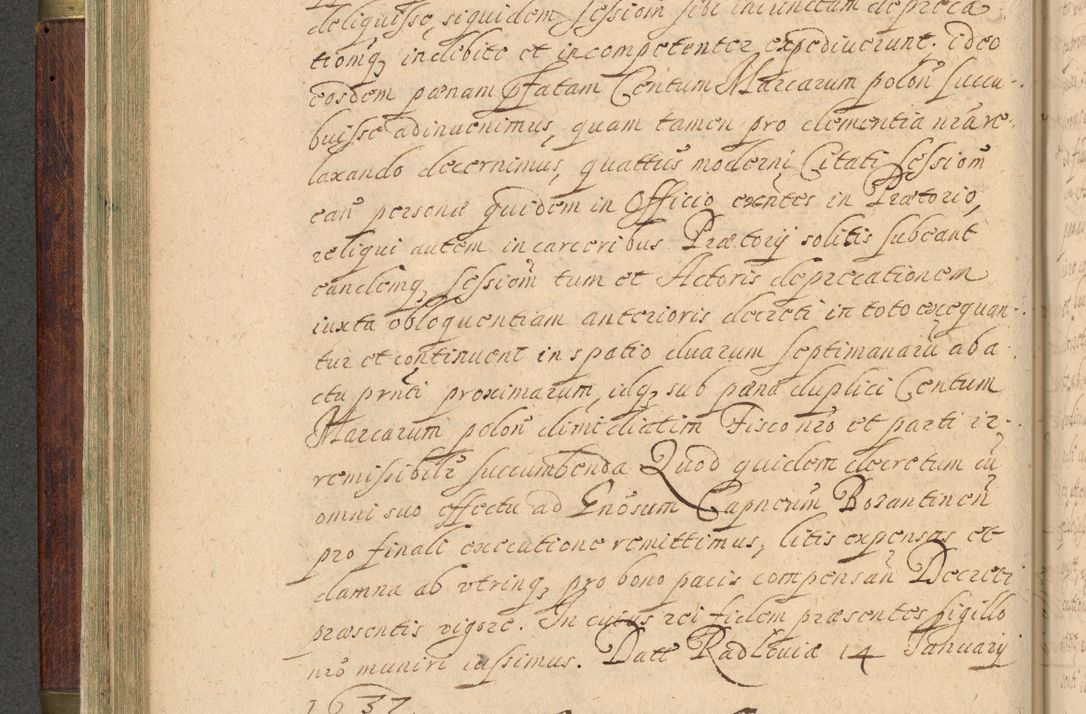 deliquisse, siquidem sessiom̃ sibi iniunctam depreca
tiomq̃ indebite et incompetenter expediuerunt. ideo
eosdem pænam p̃fatam Centum Marcarum polon̄ succu-
buisse adinuenimus, quam tamen pro clementia nr̃a re-
laxando decernimus, quattũs moderni Citati sessiom̃
ean̄ personæ quidem in Officio exñtes in Prætorio,
reliqui autem in carceribus Prætorij solitis subeant
eandemq̃ sessiom̃ tum et Actoris deprecationem
iuxta obloquentiam anterioris decreti in toto exequan-
tur et continuent in spatio duarum septimanarũ ab a
ctu prñti proximarum, idq̃ sub pæna duplici Centum
Marcarum polon̄ dimidiatim Fisco nr̃o et parti ir-
remissibilr̃ succumbenda Quod quidem decretum cũ
omni suo effectu ad Gnõsum Capneum̃ Bozantineñ
pro finali executione remittimus, litis expensas et
damna ab vtrinq̃ pro bono pacis compensañ Decreti
præsentis vigore. In cuius rei fidem præsentes sigillo
nr̃o muniri iussimus. Datt Radłouiæ 14 Januarij
1637